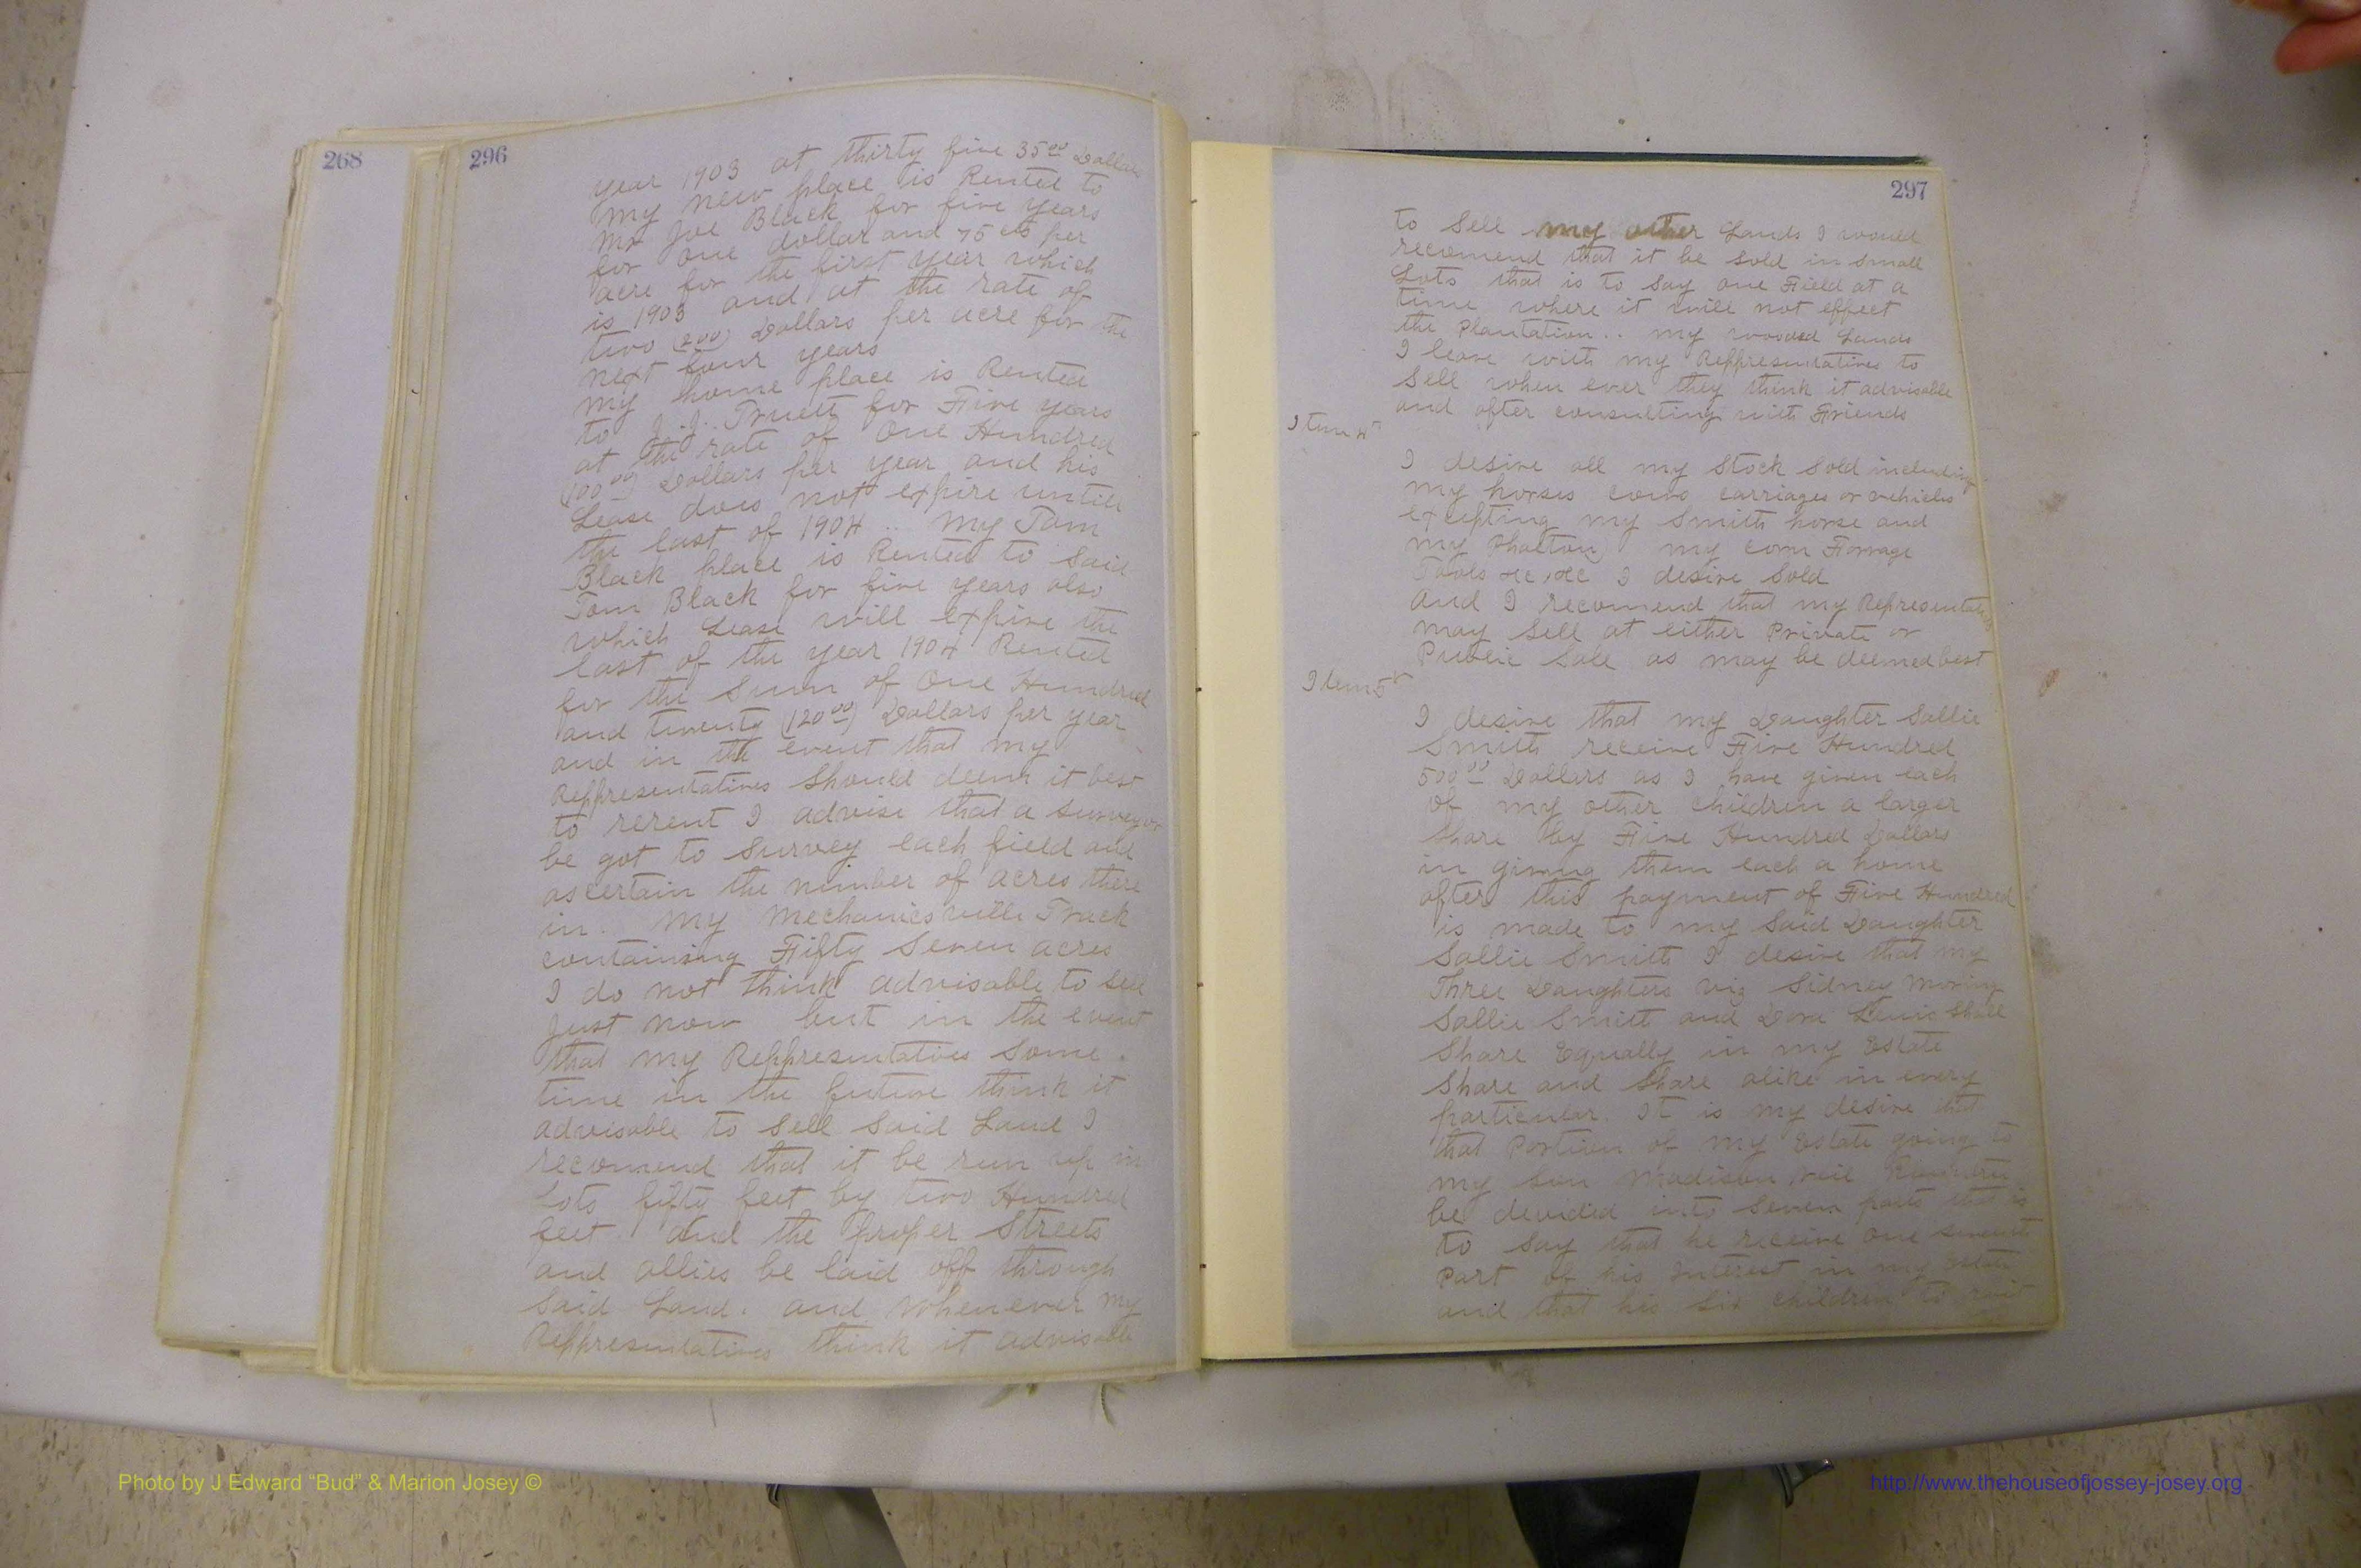 268
296
year 1903 at thirty five 3500 Dollars
my new place is Rented to
Mr Joe Black for five years
for one dollar and 75 cts per
acre for the first year which
is 1903 and at the rate of
two (2.00) Dollars per acre for the
next four years
my home place is Rented
to J.J. Truett for Five years
at the rate of One Hundred
(100 00) Dollars per year and his
Lease does not expire untill
the last of 1904 .. My Tom
Black place is Rented to said
Tom Black for five years also
which Lease will expire the
last of the year 1904 Rented
for the Sum of One Hundred
and twenty (120 00) Dollars per year
and in the event that my
Reppresentatives should deem it best
to rerent I advise that a surveyor
be got to survey each field and
ascertain the number of acres there
in. My Mechanicsville Track
containing Fifty Seven acres
I do not think advisable to sell
just now but in the event
that my Reppresentatives some
time in the future think it
advisable to sell said Land I
recomend that it be run up in
Lots fifty feet by two Hundred
feet. And the proper Streets
and allies be laid off through
said Land. and whenever my
Reppresentatives think it advisable
297
to sell my other Lands I would
recomend that it be sold in small
Lots that is to say one Field at a
time where it will not effect
the Plantation .. my wooded Lands
I leave with my Reppresentatives to
Sell when ever they think it advisable
and after consulting with Friends
Item 4"
I desire all my Stock Sold including
my horses cows carriages or vehicles
excepting my Smith horse and
my Phaeton my corn Forrage
Tools &c, &c I desire Sold
And I recomend that my Representatives
may Sell at either Private or
Public Sale as may be deemed best
Item 5"
I desire that my Daughter Sallie
Smith receive Five Hundred
500 00 Dollars as I have given each
of my other children a larger
share by Five Hundred Dollars
in giving them each a home
after this payment of Five Hundred
is made to my said Daughter
Sallie Smith I desire that my
Three Daughters viz Sidney
Sallie Smith and Dora Lewis shall
Share Equally in my Estate
Share and Share alike in every
particular. It is my desire that
that Portion of my Estate going to
my son Madison
be devided into seven parts that is
to say that he receive one seventh
part of his Interest in my estate
and that his six children to wit
Photo by J Edward “Bud” & Marion Josey ©
http://www.thehouseofjossey-josey.org